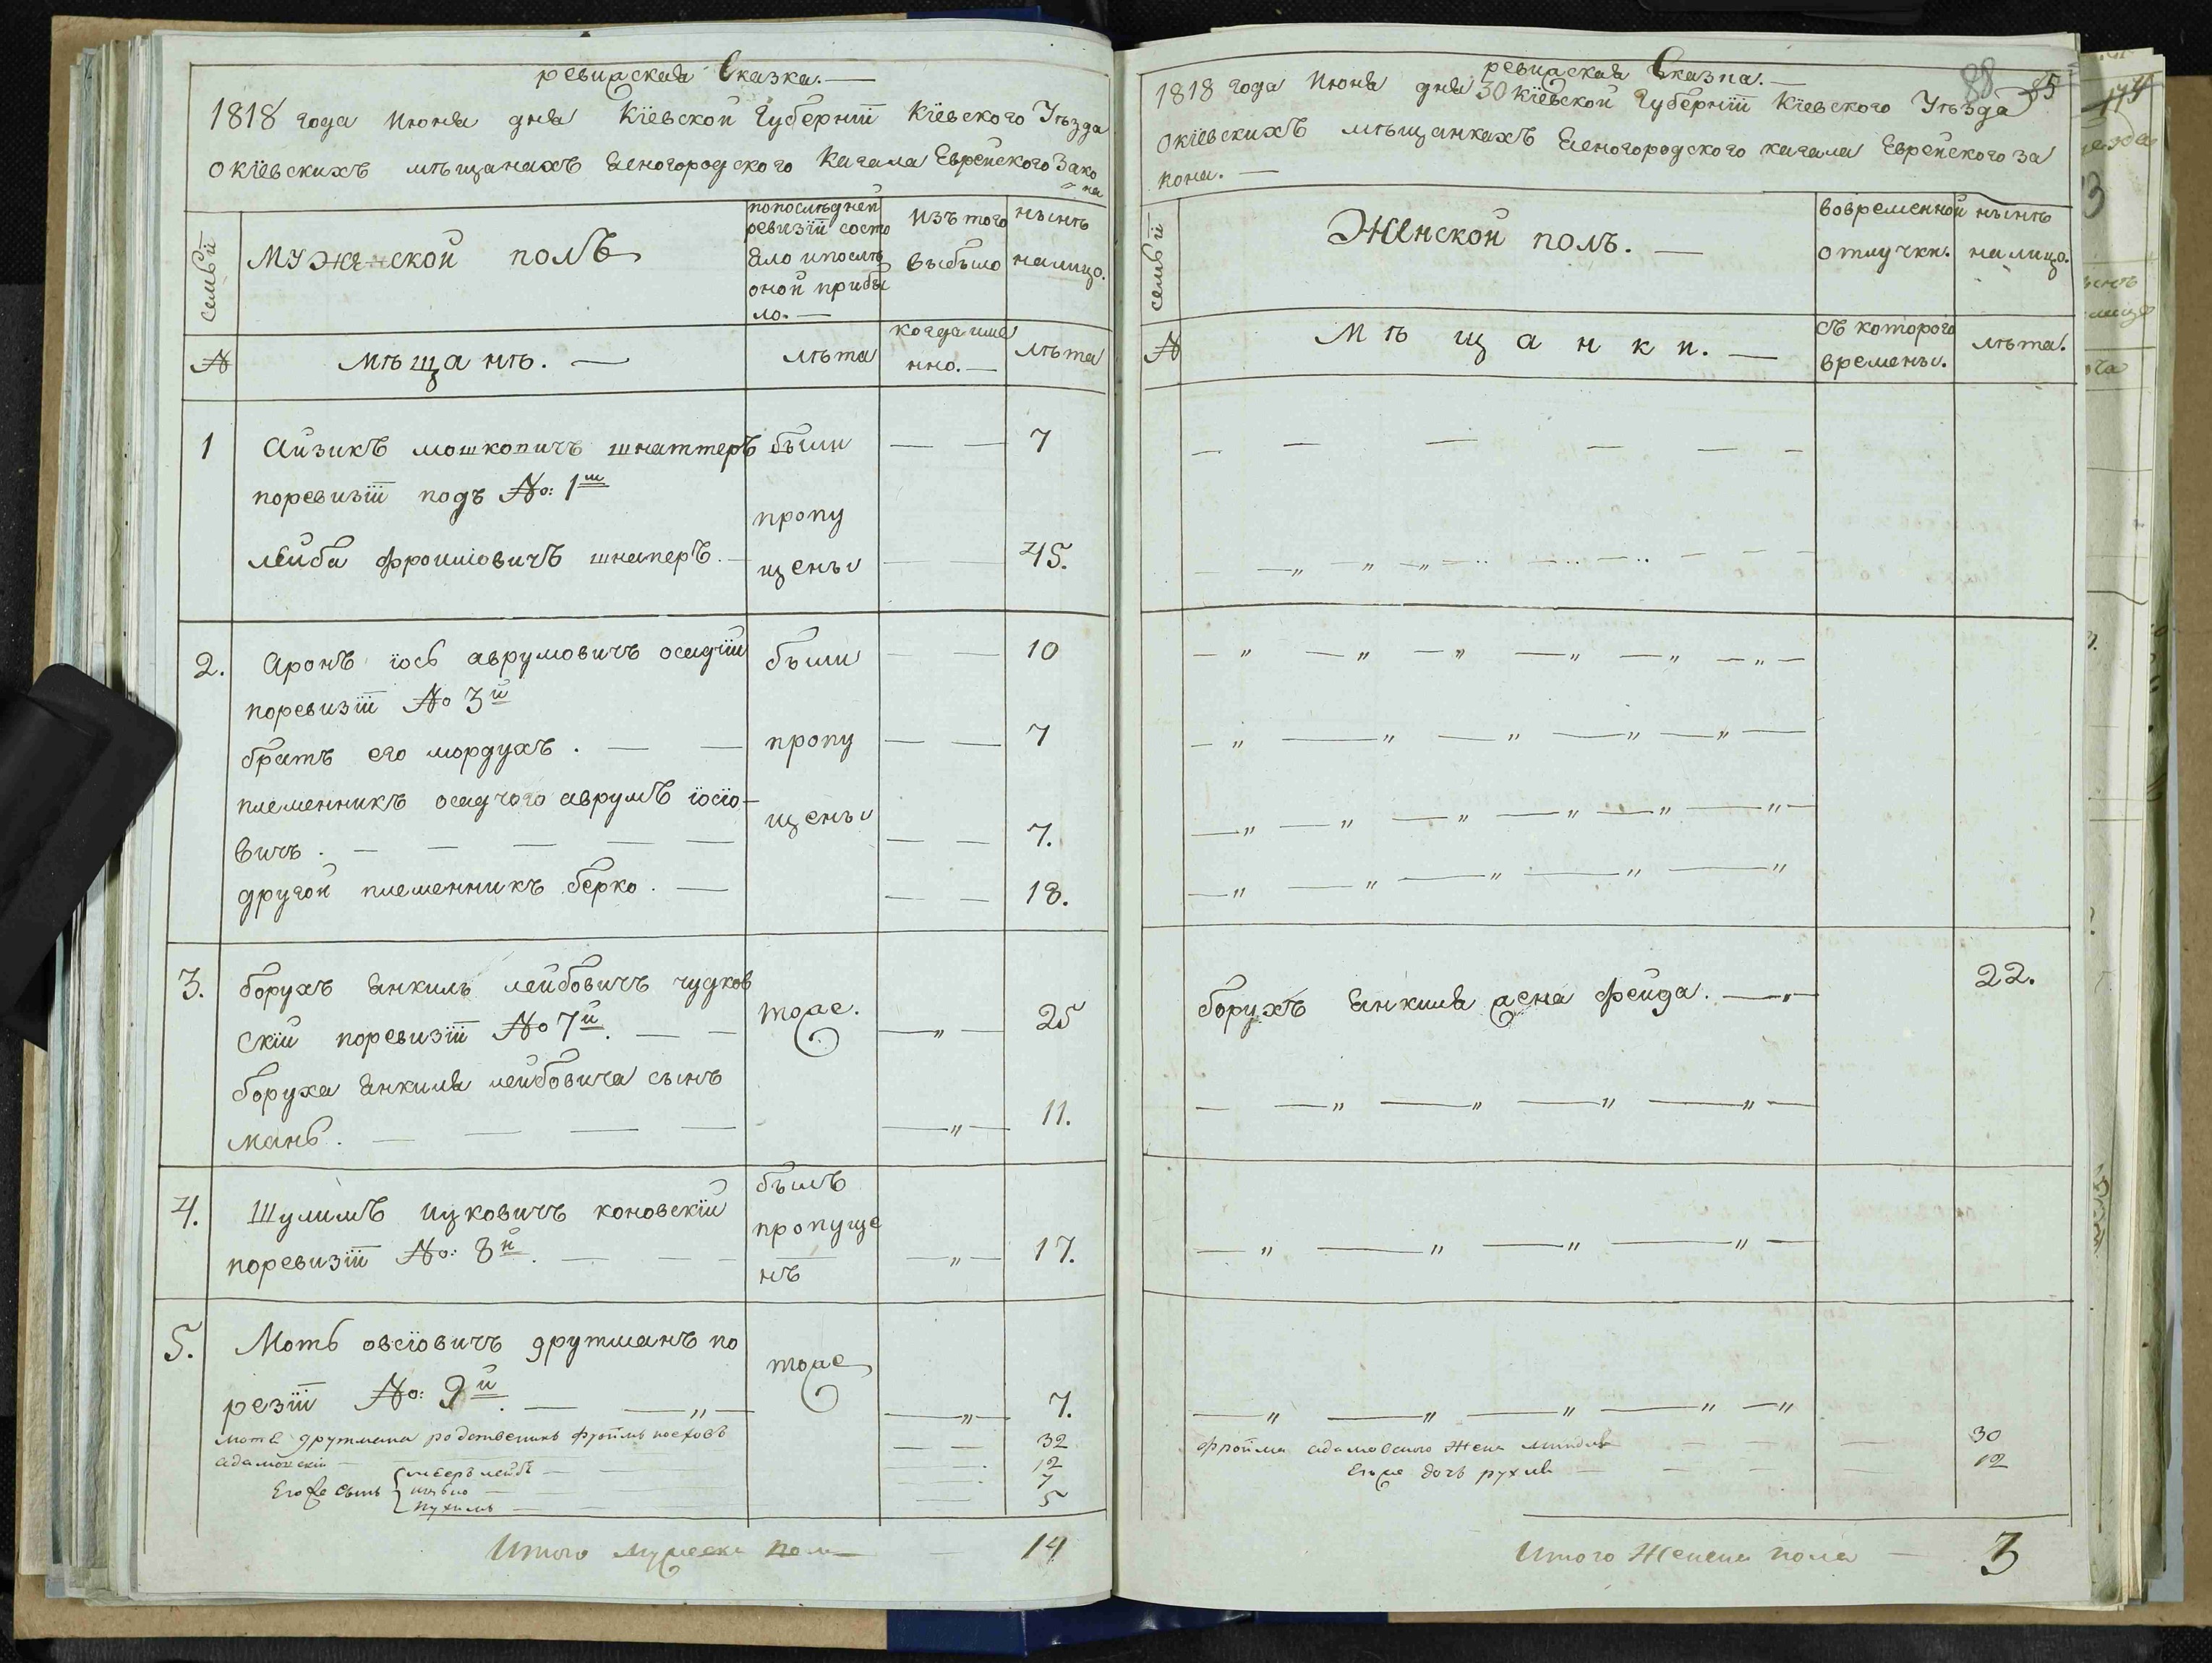 ревиская Сказка.—
1818 года Июня дня Кіевской Губерніи Кіевского Уѣзда
о кіевскихъ мѣщанахъ Ясногородского Кагала Еврейского Зако
на
семьи
мужеской полъ
по послѣдней
ревизіи состо
яло и послѣ
оной прибы
ло.—
изъ того
выбыло
нынѣ
налицо.
№
мѣщанѣ. —
лѣта
когда име
нно.—
лѣта
1
Айзикъ мошковичъ шнаттеръ
были
— —
7
поревизіи подъ №: 1ш
пропу
лейба фроимовичъ шнаперъ. —
щены
45.
2.
Аронъ іось аврумовичъ осадчій
были
— —
10
поревизіи № 3й
братъ его мордухъ. — —
пропу
— —
7
племенникъ осадчого аврумъ іосіо-
щены
вичъ. — — — — —
— —
7.
другой племенникъ берко. —
— —
18.
3.
борухъ янкиль лейбовичъ чудков
тоже.
скій поревизіи № 7й. — —
—„—
25
боруха янкиля лейбовича сынъ
мань. — — — —
—„—
11.
4.
Шулимъ ицковичъ коновскій
былъ
пропуще
нъ
поревизіи №: 8й. — —
—„—
17.
5.
Моть овсіовичъ друтманъ по
тоже
резіи №: 9й. — —„—
—„—
7.
мотя друтмана родственикъ фроимъ
— —
32
адамовскій —
12
Его же сынъ
7
5
Итого мужеска пола —
14
ревиская Сказка.—
88
85
1818 года Июня дня 30 Кіевской Губерніи Кіевского Уѣзда
о кіевскихъ мѣщанкахъ Ясногородского кагала Еврейского за
кона. —
семьи
Женской полъ. —
вовременной
отлучки.
нынѣ
налицо.
№
Мѣщанки. —
съ которого
времены.
лѣта.
борухъ янкиля жена фейга. —
22.
фроима адамовского жена миндля
30
Егоже дочь рухля
12
Итого Женска пола —
3